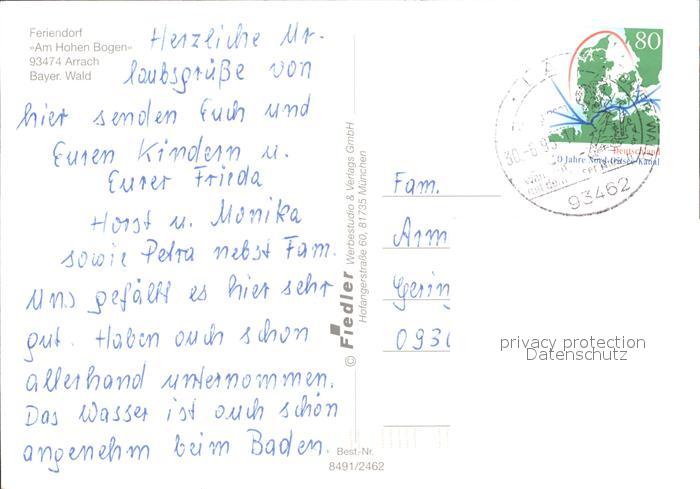 Feriendorf
»Am Hohen Bogen«
93474 Arrach
Bayer. Wald
Herzliche Ur-
laubsgrüße von
hier senden Euch und
Euren Kindern u.
Eurer Frieda
Horst u. Monika
sowie Petra nebst Fam.
Uns gefällt es hier sehr
gut. Haben auch schon
allerhand unternommen.
Das Wasser ist auch schön
angenehm beim Baden.
© Fiedler Werbestudio & Verlags GmbH
Hofangerstraße 60, 81735 München
Best.-Nr.
8491/2462
80
Deutschland
Jahre Nord-Ostsee-Kanal
93462
Fam.
Arm
Gerin
093
privacy protection
Datenschutz